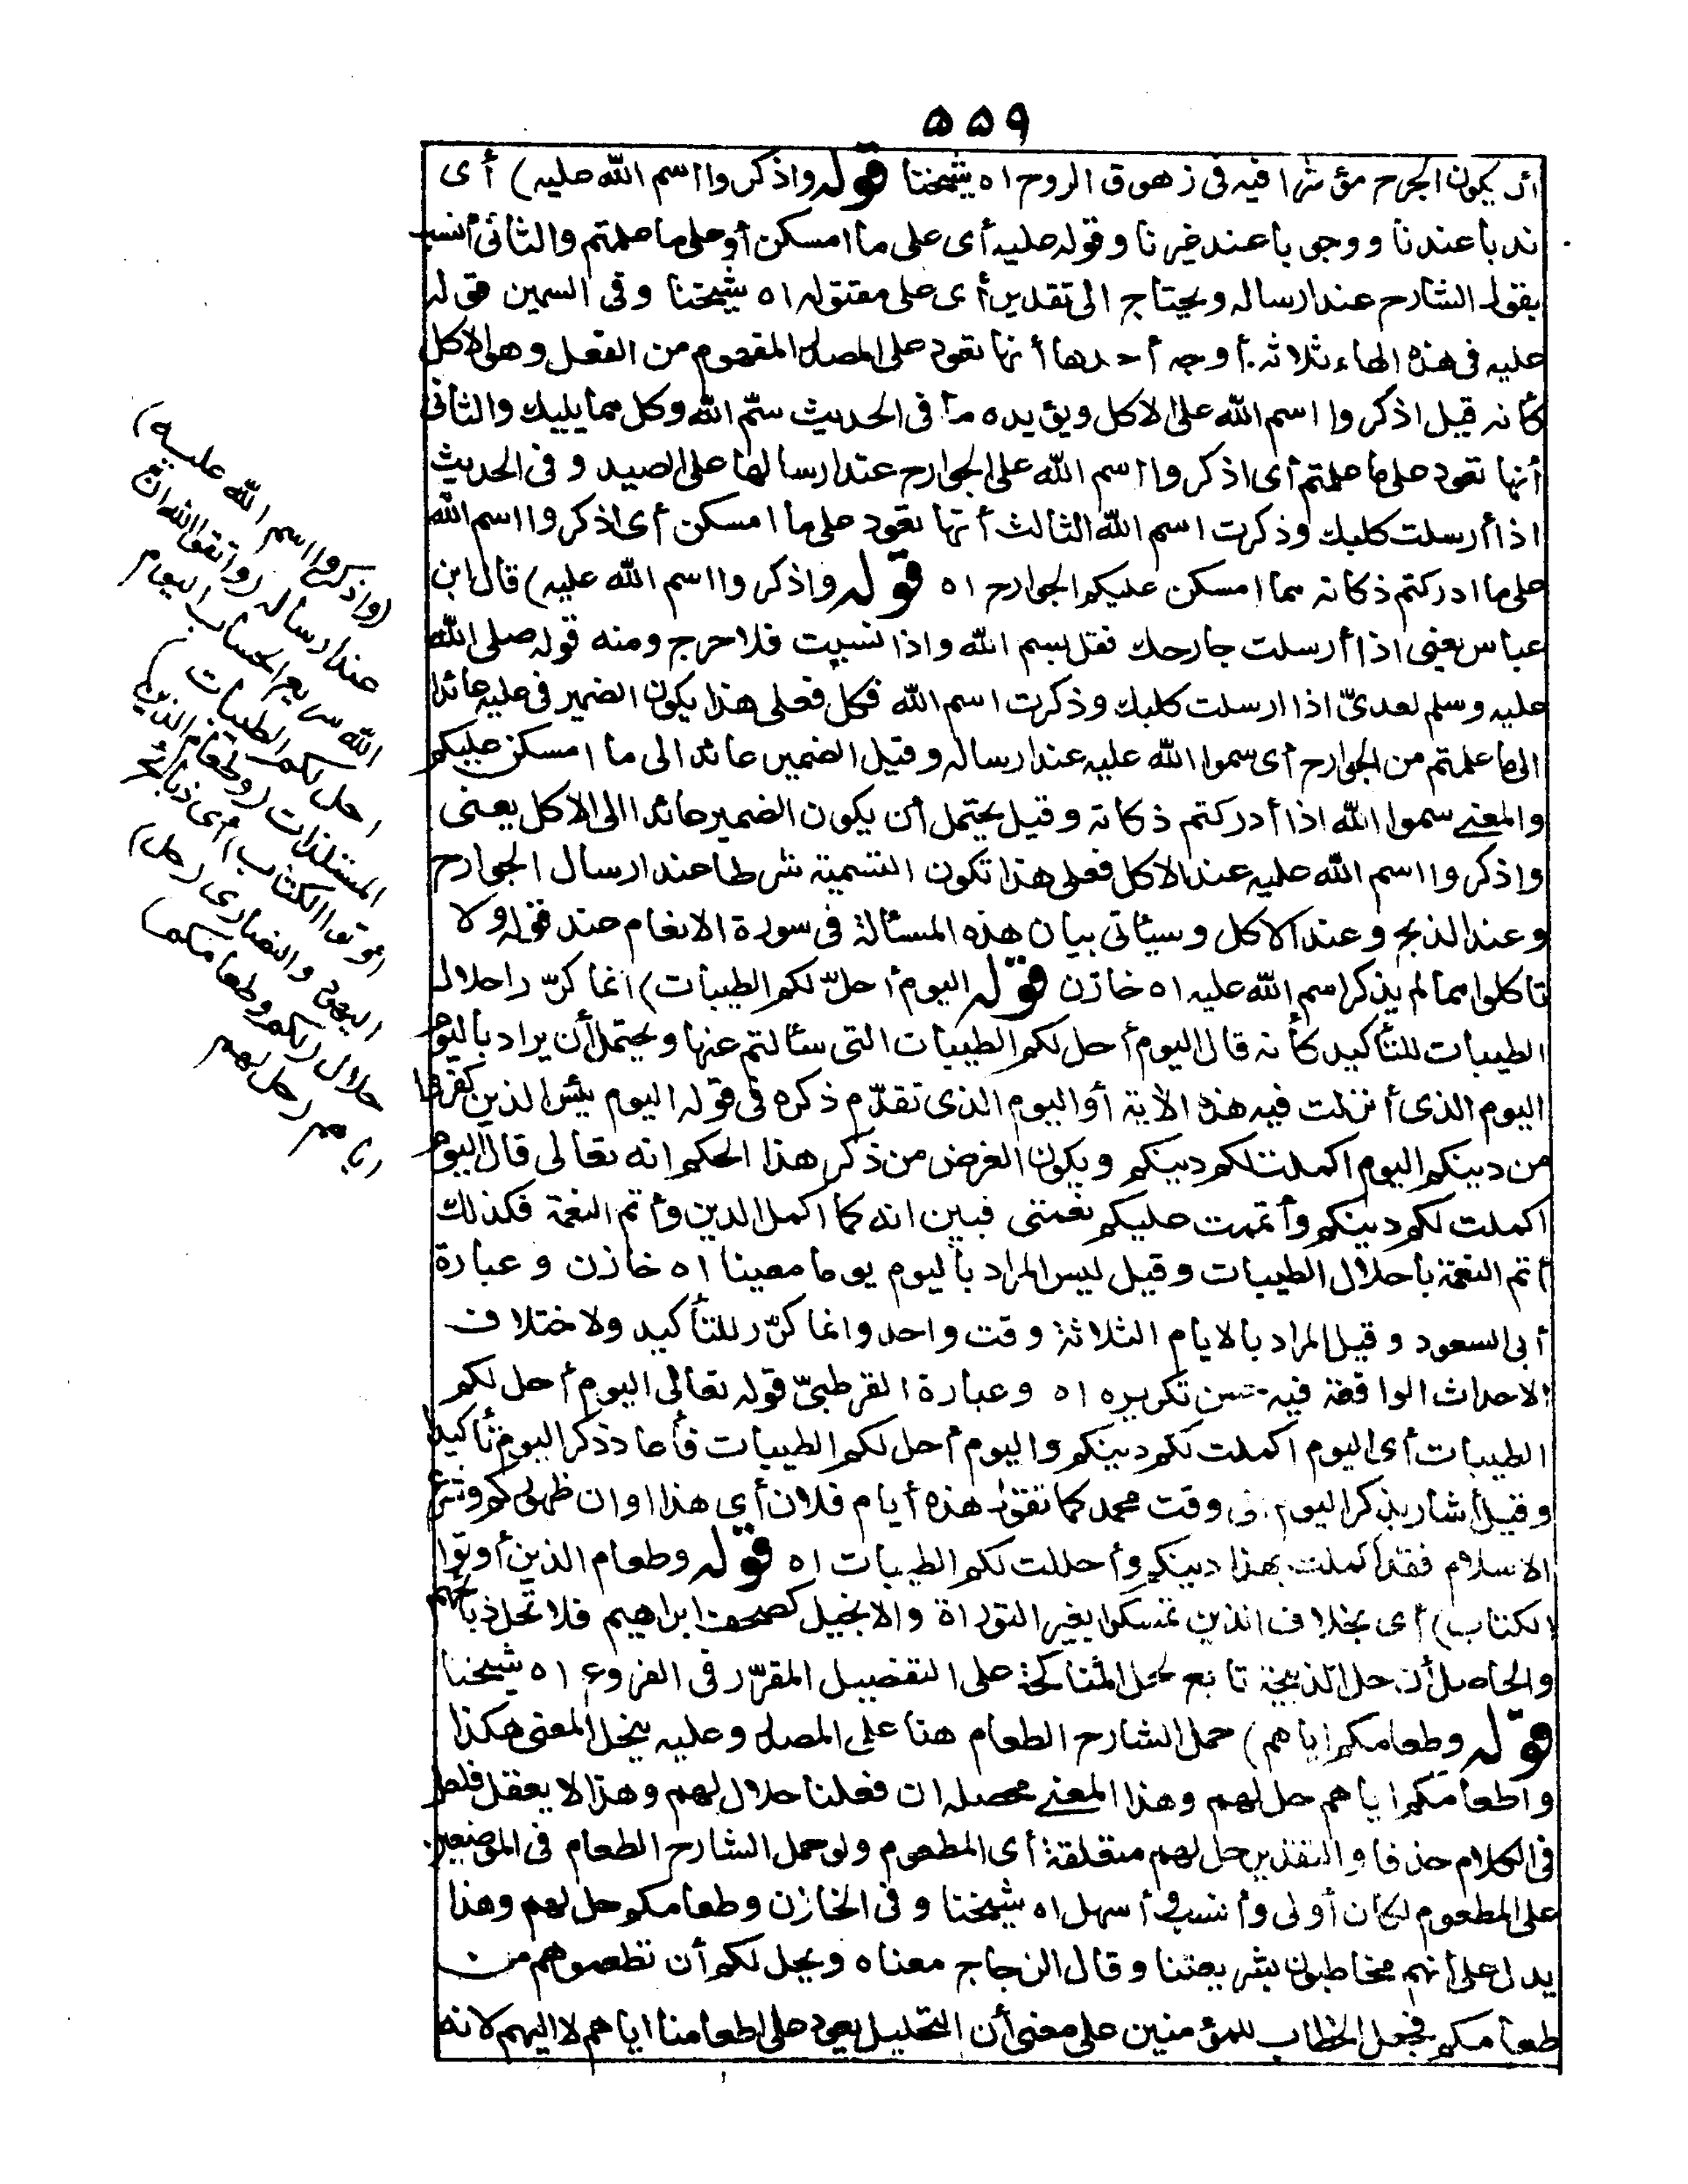 ٥٥٩
أن يكون الجرح مؤثرا فيه فى زهوق الروح اه شيخنا قوله واذكروا اسم الله عليه) أى
ندبا عندنا ووجوبا عند غيرنا وقوله عليه أى على ما امسكن أو على ما علمتم والثانى أنسب
بقول الشارح عند ارساله ويحتاج الى تقدير أى على مقتوله اه شيخنا وفى السمين قوله
عليه فى هذه الهاء ثلاثة أوجه أحدها أنها تعود على المصدر المفهوم من الفعل وهو الاكل
كأنه قيل اذكروا اسم الله على الاكل ويؤيده ما فى الحديث سمّ الله وكل مما يليك والثانى
أنها تعود على ما علمتم أى اذكروا اسم الله على الجوارح عند ارسالها على الصيد وفى الحديث
اذا أرسلت كلبك وذكرت اسم الله الثالث أنها تعود على ما امسكن أى اذكروا اسم الله
على ما ادركتم ذكاته مما امسكن عليكم الجوارح اه قوله واذكروا اسم الله عليه) قال ابن
عباس يعنى اذا أرسلت جارحك فقل بسم الله واذا نسيت فلا حرج ومنه قوله صلى الله
عليه وسلم لعدىّ اذا ارسلت كلبك وذكرت اسم الله فكل فعلى هذا يكون الضمير فى عليه عائدا
الى ما علمتم من الجوارح أى سموا الله عليه عند ارساله وقيل الضمير عائد الى ما امسكن عليكم
والمعنى سموا الله اذا أدركتم ذكاته وقيل يحتمل أن يكون الضمير عائدا الى الاكل يعنى
واذكروا اسم الله عليه عند الاكل فعلى هذا تكون التسمية شرطا عند ارسال الجوارح
وعند الذبح وعند الاكل وسيأتى بيان هذه المسألة فى سورة الانعام عند قوله ولا
تاكلوا مما لم يذكر اسم الله عليه اه خازن قوله اليوم أحلّ لكم الطيبات) انما كرّر احلال
الطيبات للتأكيد كأنه قال اليوم أحل لكم الطيبات التى سألتم عنها ويحتمل أن يراد باليوم
اليوم الذى أنزلت فيه هذه الآية أو اليوم الذى تقدّم ذكره فى قوله اليوم يئس الذين كفروا
من دينكم اليوم اكملت لكم دينكم ويكون الغرض من ذكر هذا الحكم انه تعالى قال اليوم
اكملت لكم دينكم وأتممت عليكم نعمتى فبين انه كما اكمل الدين وأتم النعمة فكذلك
أتم النعمة باحلال الطيبات وقيل ليس المراد باليوم يوما معينا اه خازن وعبارة
أبى السعود وقيل المراد بالايام الثلاثة وقت واحد وانما كرّر للتأكيد ولاختلاف
الاحداث الواقعة فيه حسن تكريره اه وعبارة القرطبىّ قوله تعالى اليوم أحل لكم
الطيبات أى اليوم اكملت لكم دينكم واليوم أحل لكم الطيبات فأعاد ذكر اليوم تأكيدا
وقيل أشار بذكر اليوم الى وقت محمد كما تقول هذه أيام فلان أى هذا اوان ظهوركم وشيوع
الاسلام فقد اكملت بهذا دينكم وأحللت لكم الطيبات اه قوله وطعام الذين أوتوا
الكتاب) أى بخلاف الذين تمسكوا بغير التوراة والانجيل كصحف ابراهيم فلا تحل ذبائحهم
والحاصل أن حل الذبيحة تابع لحل المناكحة على التفصيل المقرّر فى الفروع اه شيخنا
قوله وطعامكم اياهم) حمل الشارح الطعام هنا على المصدر وعليه ينحل المعنى هكذا
واطعامكم اياهم حل لهم وهذا المعنى محصله ان فعلنا حلال لهم وهذا لا يعقل فلعل
فى الكلام حذفا والتقدير حل لهم متعلقة أى المطعوم ولو حمل الشارح الطعام فى الموضعين
على المطعوم لكان أولى وأنسب وأسهل اه شيخنا وفى الخازن وطعامكم حل لهم وهذا
يدل على أنهم مخاطبون بشريعتنا وقال الزجاج معناه ويحل لكم أن تطعموهم من
طعامكم فجعل الخطاب للمؤمنين على معنى أن التحليل يعود على اطعامنا اياهم لا اليهم لانه
(واذكروا اسم الله عليه)
عند ارساله (واتقوا الله ان
الله سريع الحساب اليوم
احل لكم الطيبات)
المستلذات (وطعام الذين
اوتوا الكتاب) أى ذبائح
اليهود والنصارى (حل)
حلال (لكم وطعامكم)
اياهم (حل لهم